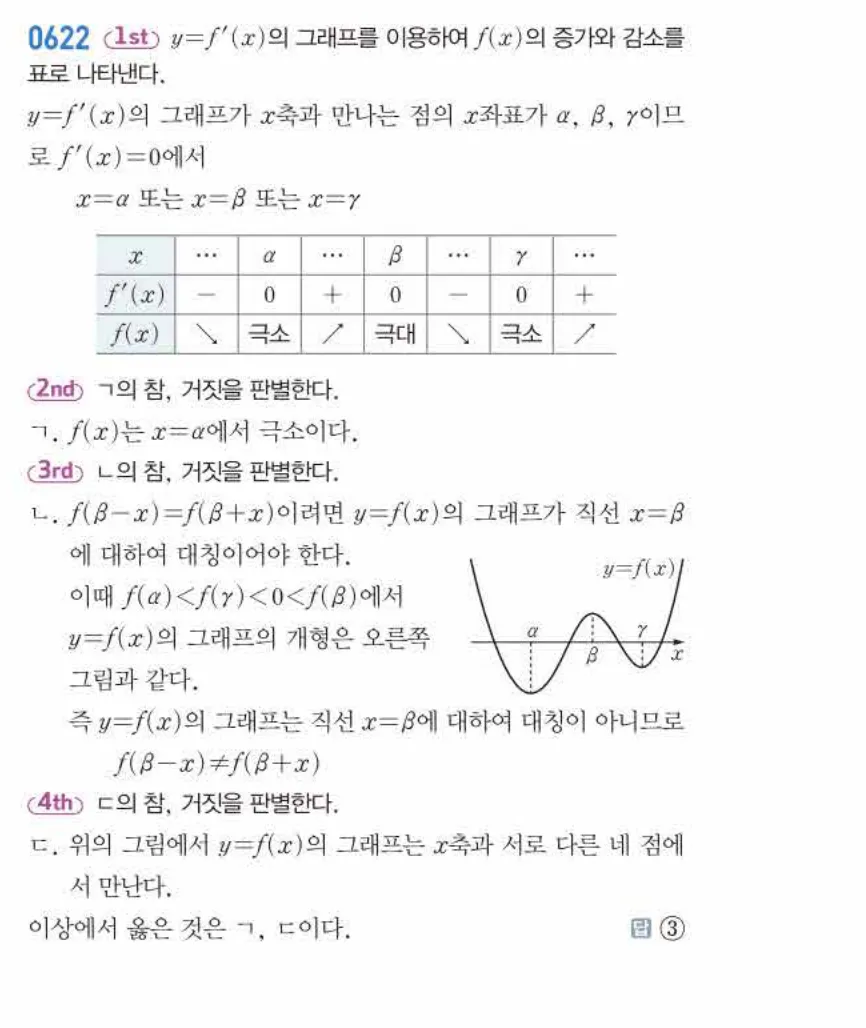 0622 1st y=f′(x)의 그래프를 이용하여 f(x)의 증가와 감소를
표로 나타낸다.
y=f′(x)의 그래프가 x축과 만나는 점의 x좌표가 α, β, γ이므
로 f′(x)=0에서
x=α 또는 x=β 또는 x=γ
x ⋯ α ⋯ β ⋯ γ ⋯
f′(x) − 0 + 0 − 0 +
f(x) ↘ 극소 ↗ 극대 ↘ 극소 ↗
2nd ㄱ의 참, 거짓을 판별한다.
ㄱ. f(x)는 x=α에서 극소이다.
3rd ㄴ의 참, 거짓을 판별한다.
ㄴ. f(β−x)=f(β+x)이려면 y=f(x)의 그래프가 직선 x=β
에 대하여 대칭이어야 한다.
이때 f(α)<f(γ)<0<f(β)에서
y=f(x)의 그래프의 개형은 오른쪽
그림과 같다.
y=f(x)
α
γ
β
x
즉 y=f(x)의 그래프는 직선 x=β에 대하여 대칭이 아니므로
f(β−x)≠f(β+x)
4th ㄷ의 참, 거짓을 판별한다.
ㄷ. 위의 그림에서 y=f(x)의 그래프는 x축과 서로 다른 네 점에
서 만난다.
이상에서 옳은 것은 ㄱ, ㄷ이다. 답 ③